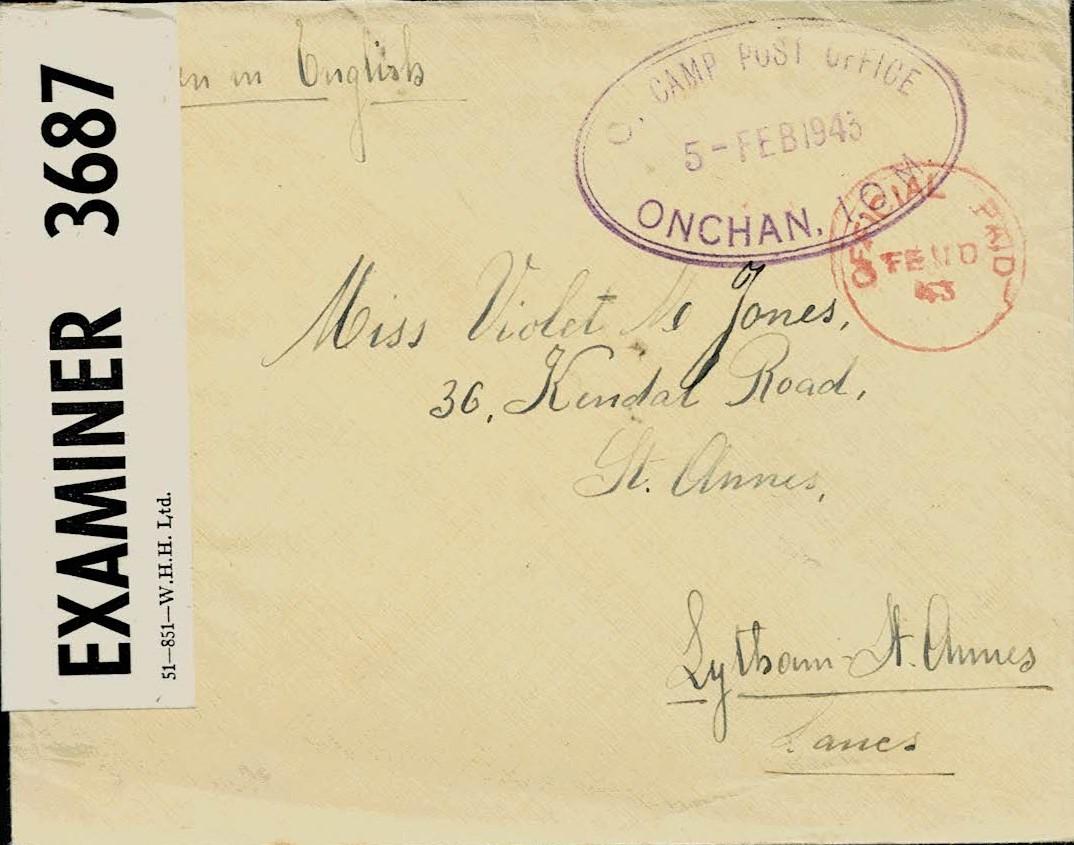 EXAMINER 3687
51—851—W.H.H. Ltd.
in English
O. CAMP POST OFFICE
5-FEB1943
ONCHAN, I.O.M.
OFFICIAL PAID
43
Miss Violet M Jones,
36, Kendal Road,
St. Annes,
Lytham-St. Annes
Lancs